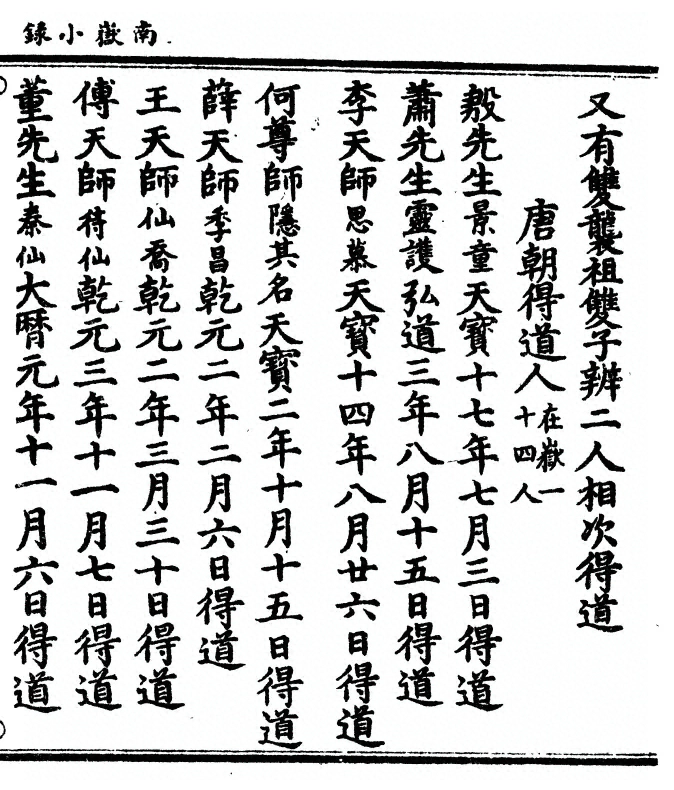 南嶽小録
又有雙襲祖雙子辨二人相次得道
唐朝得道人在嶽一十四人
先生景童天寶十七年七月三日得道
蕭先生靈護弘道三年八月十五日得道
李天師思慕天寶十四年八月廿六日得道
何尊師隱其名天寶二年十月十五日得道
薛天師季昌乾元二年二月六日得道
王天師仙喬乾元二年三月三十日得道
傅天師待仙乾元三年十一月七日得道
董先生秦仙大曆元年十一月六日得道